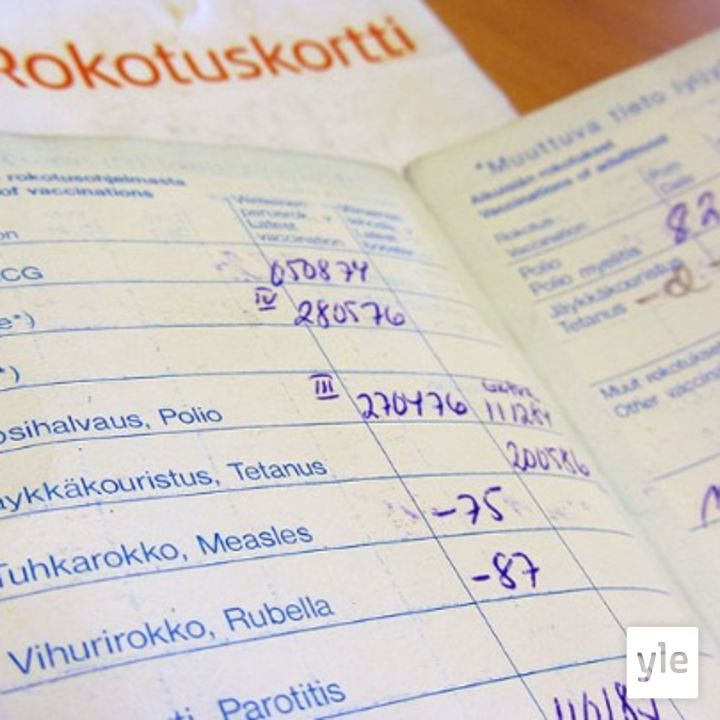 Rokotuskortti
rokotusohjelmasta
of vaccinations
Latest
vaccination
on
CG 050874
e*) IV 280576
*)
osihalvaus, Polio III 270476 111284
äykkäkouristus, Tetanus 200586
Tuhkarokko, Measles -75
Vihurirokko, Rubella -87
ti, Parotitis
*Muuttuva tieto
Aikuisiän rokotukset
Vaccinations of adulthood
Pvm
Date
Rokotus
Vaccination
Polio 82
Polio myelitis
Jäykkäkouristus
Tetanus
Muut rokotukset
Other vaccin
yle